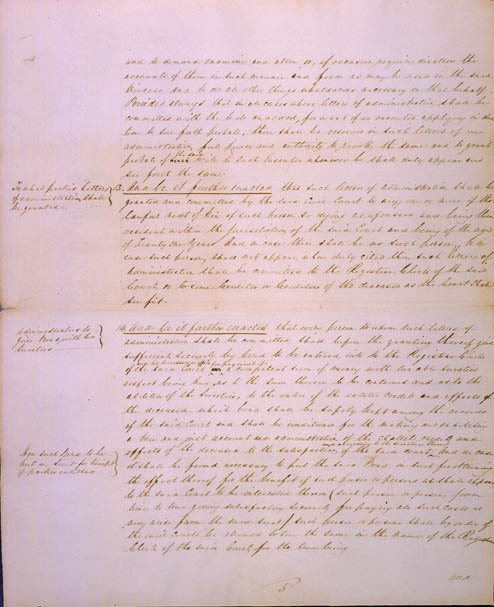 and to demand examine and allow or, if occasion require, disallow the
accounts of them in such manner and form as may be used in the said
and to do all other things whatsoever necessary in that behalf
Provided always that in all cases where letters of administration shall be
committed with the Will annexed, for want of an executor applying in due
time to sue forth probate, there shall be reserved in such letters of
administration full power and authority to revoke the same and to grant
probate of the said Will to such Executor whenever he shall duly appear and
sue forth the same
To what parties letters
of administration shall
be granted
And be it further enacted that such letters of administration shall be
granted and committed by the said Court to any one or more of the
lawful next of Kin of such person so dying as aforesaid and being then
resident within the jurisdiction of the said Court and being of the age
of Twenty one Years And in case there shall be no such person, or in
case such person shall not appear, when duly cited then such letters of
Administration shall be committed to the Registrar Clerk of the said
Court or to some Creditor or Creditors of the deceased as the Court shall
see fit.
Administrators to
give Bond with two
Sureties
And be it further enacted that every person to whom such letters of
administration shall be committed shall before the granting thereof give
sufficient security by bond to be entered into to the Registrar Clerk
of the said Court in a competent sum of money with two able sureties
respect being had, as to the sum therein to be contained and as to the
abilities of the Sureties, to the value of the estates credits and effects of
the deceased which bond shall be safely kept among the records
of the said Court and shall be conditioned for the making and exhibiting
a true and just account and administration of the
effects of the deceased to the satisfaction of the said Court And in case
How such Bond to be
put in Suit for benefit
of parties entitled
it shall be found necessary to put the said Bond in suit for obtaining
the effect thereof for the benefit of such person or persons as shall appear
to the said Court to be interested therein (such person or persons from
time to time giving satisfactory security for paying all such costs as
may arise from the said suit) such person or persons shall by order of
the said Court be allowed to sue the same in the name of the Registrar
Clerk of the said Court for the time being
and
5